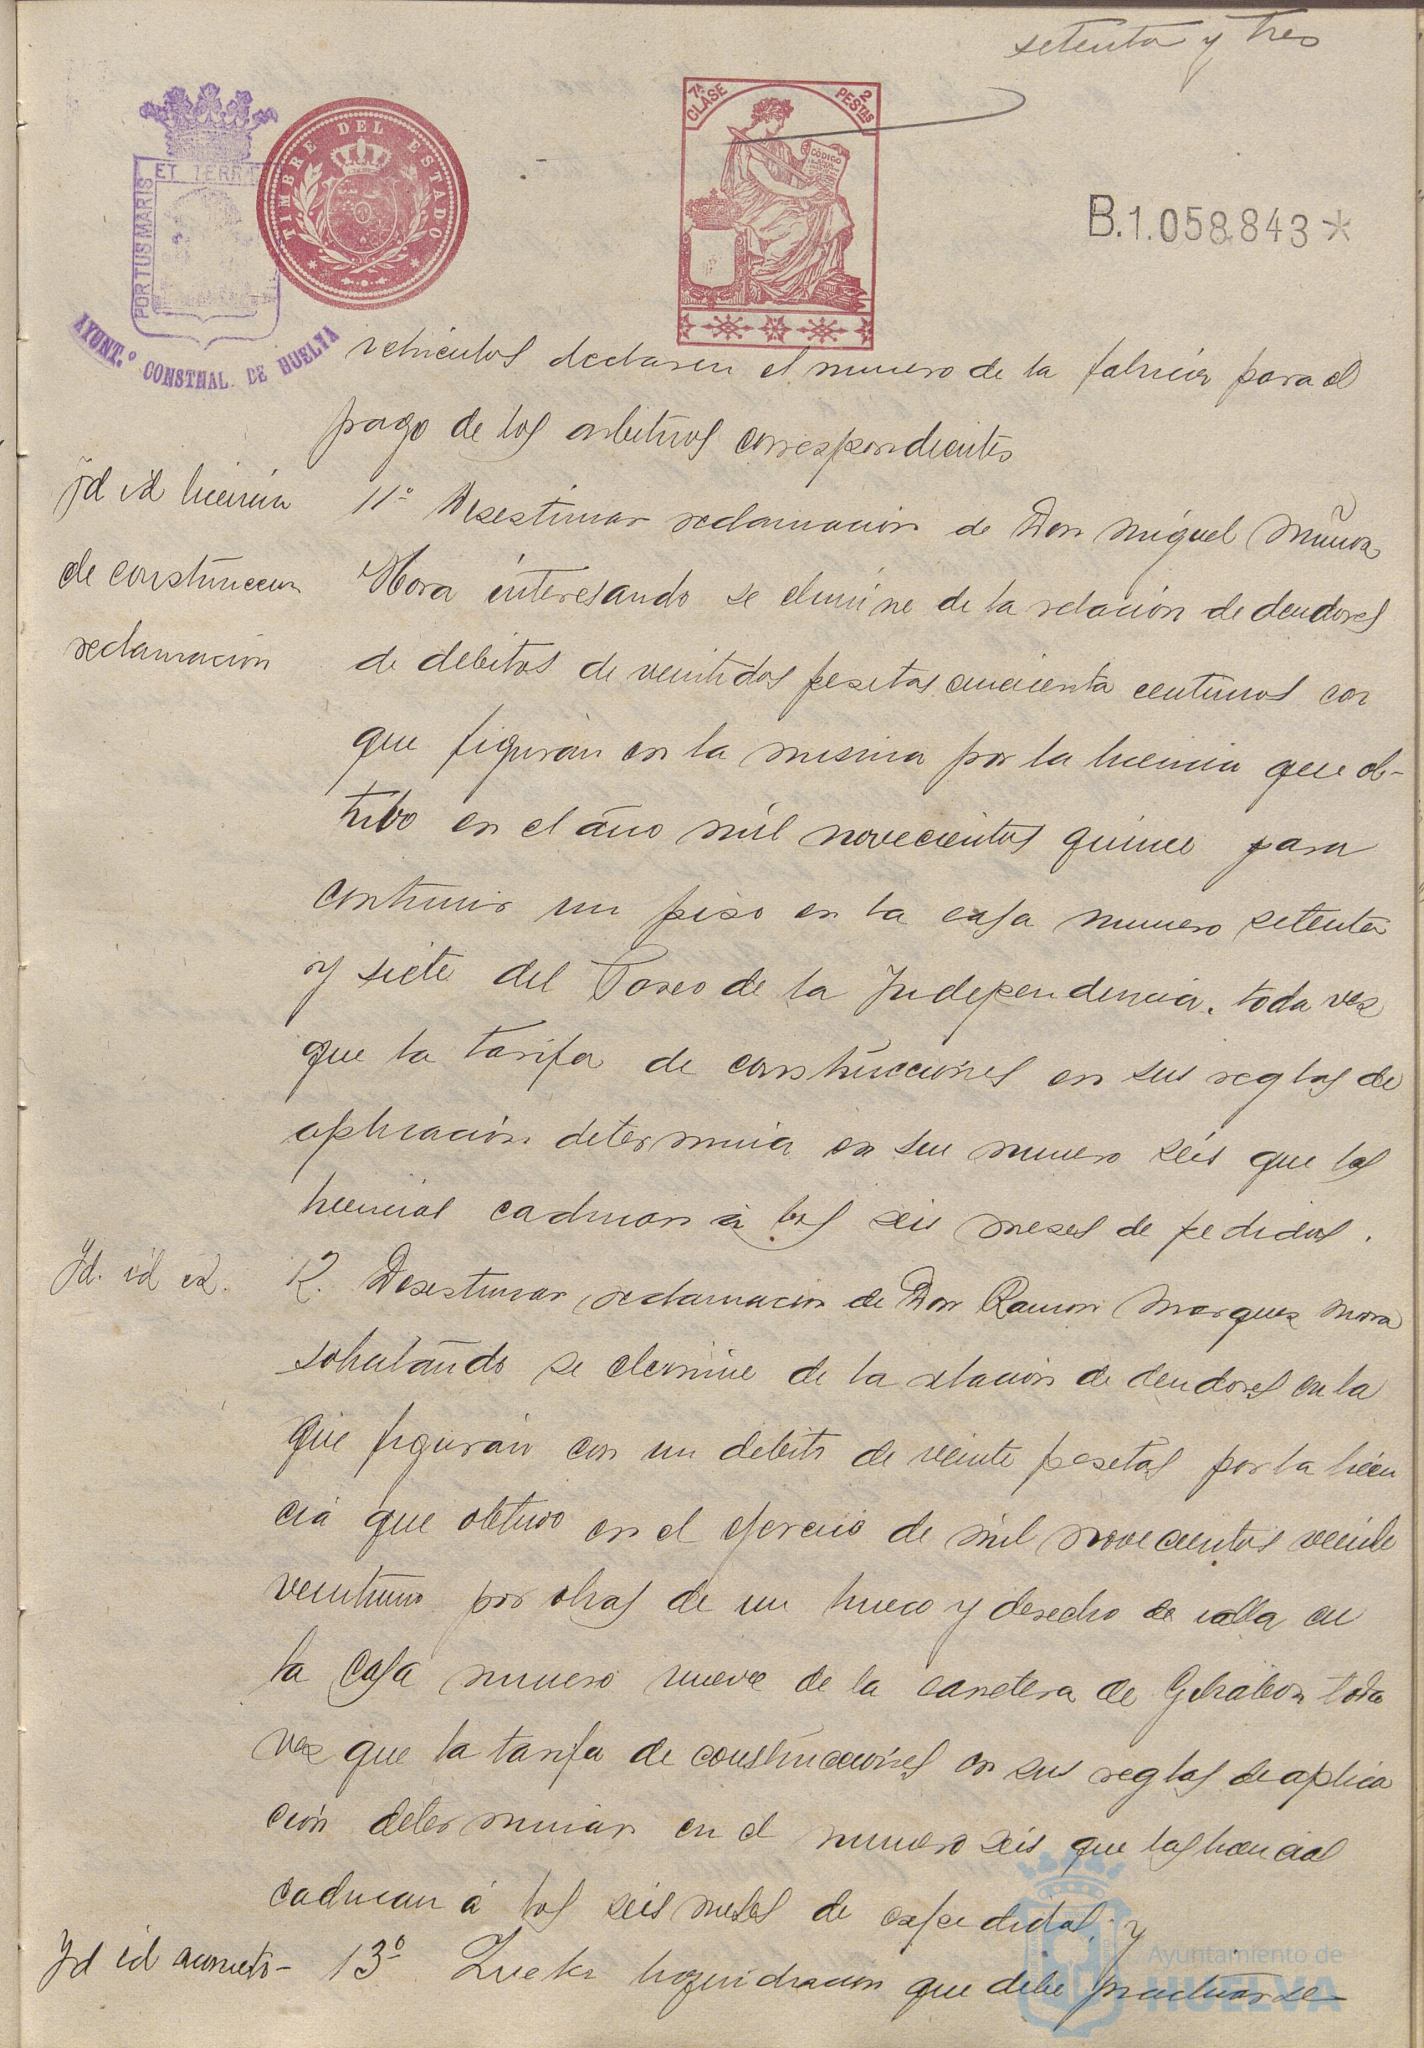 setenta y tres
7ª CLASE 2 PESETAS
CÓDIGO
TIMBRE DEL ESTADO
PORTUS MARIS ET TERR
AYUNT.º CONSTNAL. DE HUELVA
B.1.058.843*
vehiculos declaren el numero de la fabrica para el
pago de los arbitrios correspondientes
Id id licencia
de construccion
reclamacion
11º Desestimar reclamacion de Don Miguel Muñoz
Mora interesando se elimine de la relacion de deudores
de debitos de veintidos pesetas cincuenta centimos con
que figuran en la misma por la licencia que ob-
tubo en el año mil novecientos quince para
contruir un piso en la casa numero setenta
y siete del Paseo de la Independencia, toda vez
que la tarifa de construcciones en sus reglas de
aplicación determina en su numero seis que las
licencias caducan á los seis meses de pedidas.
Id. id id.
12. Desestimar reclamacion de Don Ramon Marquez Mora
solicitando se elemine de la relacion de deudores en la
que figuran con un debito de veinte pesetas por la licen
cia que obtuvo en el ejercicio de mil novecientos veinte
veintiuno por obras de un hueco y desecho de valla en
la casa numero nueve de la carretera de Gibraleon toda
vez que la tarifa de construcciones en sus reglas de aplica
ción determinan en el numero seis que las licencias
caducan á los seis meses de expedidas; y
Id id acometi-
13º liquidacion que debe practicarse
Ayuntamiento de
HUELVA